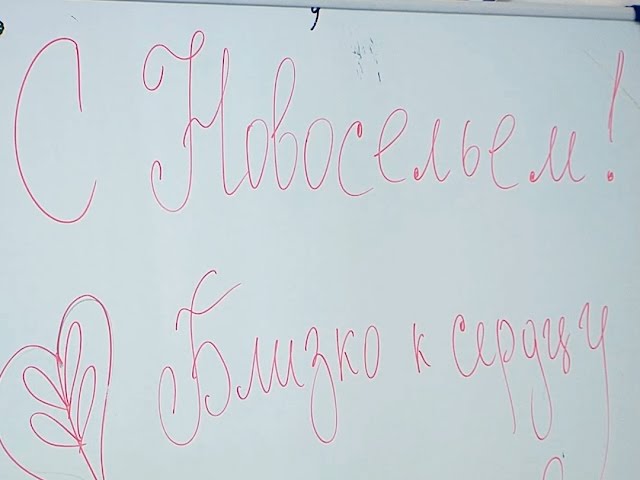 С Новосельем!
Близко к сердцу